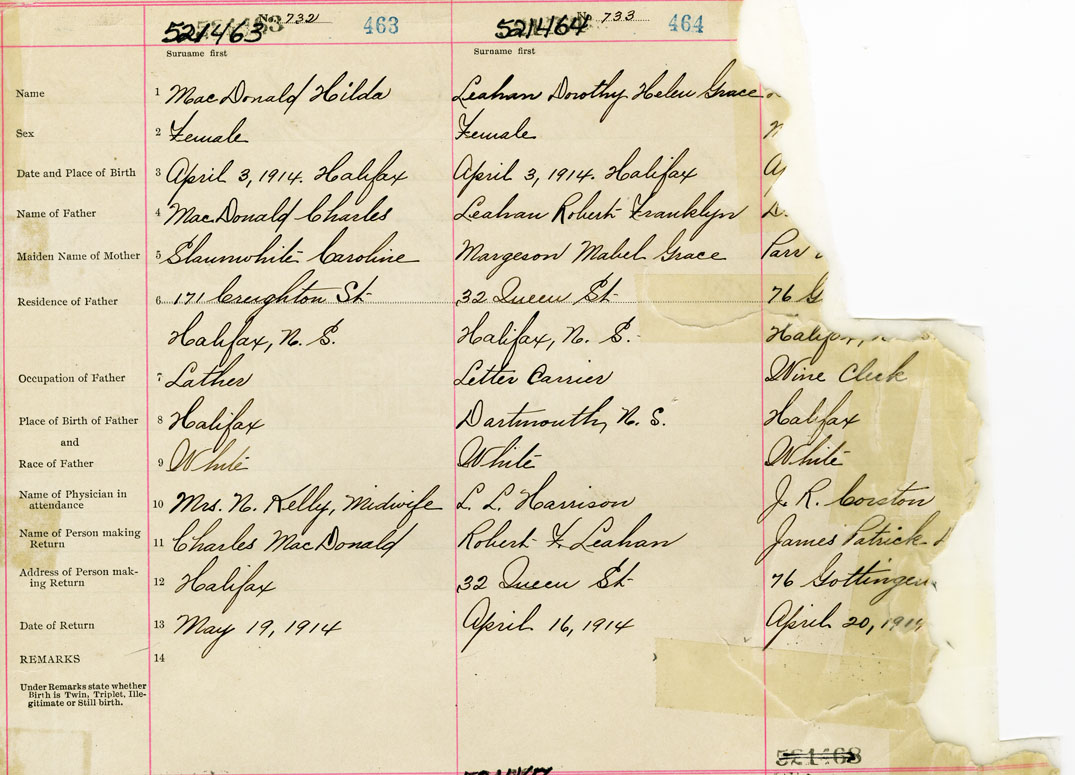 521463 No. 732 463 521464 No. 733 464
Surname first Surname first
Name 1 MacDonald Hilda Leahan Dorothy Helen Grace
Sex 2 Female Female
Date and Place of Birth 3 April 3, 1914. Halifax April 3, 1914. Halifax
Name of Father 4 MacDonald Charles Leahan Robert Franklyn
Maiden Name of Mother 5 Slaunwhite Caroline Margeson Mabel Grace Parr
Residence of Father 6 171 Creighton St 32 Queen St 76 G
Halifax, N. S. Halifax, N. S. Halifax, N. S.
Occupation of Father 7 Lather Letter Carrier Wine Clerk
Place of Birth of Father 8 Halifax Dartmouth, N. S. Halifax
and
Race of Father 9 White White White
Name of Physician in
attendance 10 Mrs. N. Kelly, Midwife L. L. Harrison J. R. Corston
Name of Person making
Return 11 Charles MacDonald Robert F Leahan James Patrick
Address of Person mak-
ing Return 12 Halifax 32 Queen St 76 Gottingen
Date of Return 13 May 19, 1914 April 16, 1914 April 20, 1914
REMARKS 14
Under Remarks state whether
Birth is Twin, Triplet, Ille-
gitimate or Still birth.
521468